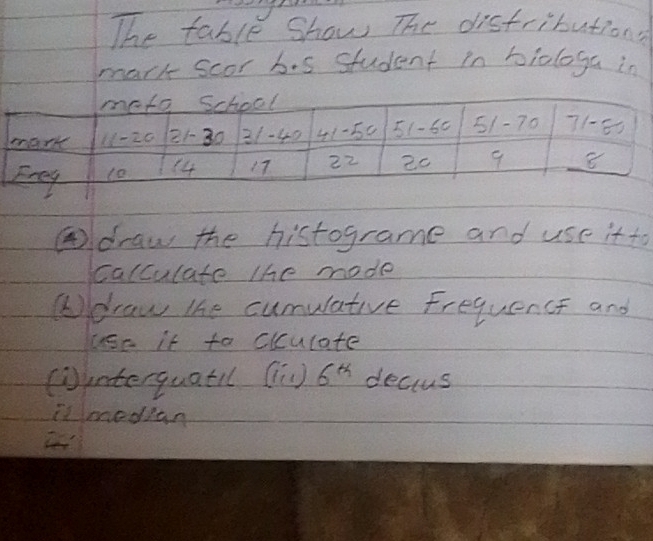 The table Show The distributions
mark Scor b.s Student in biologa in
meto School
mark 11-20 21-30 31-40 41-50 51-60 51-70 71-80
Freq 10 14 17 22 20 9 8
(a) draw the histograme and use it to
calculate the mode
(b) draw the cumulative Frequency and
use it to clculate
(i) interquatil (iii) 6th decius
ii median